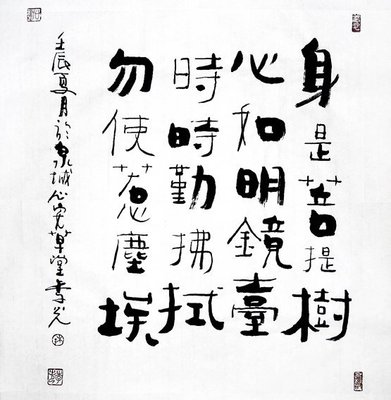 身是菩提樹
心如明鏡臺
時時勤拂拭
勿使惹塵埃
壬辰夏月於泉城心宽草堂李光